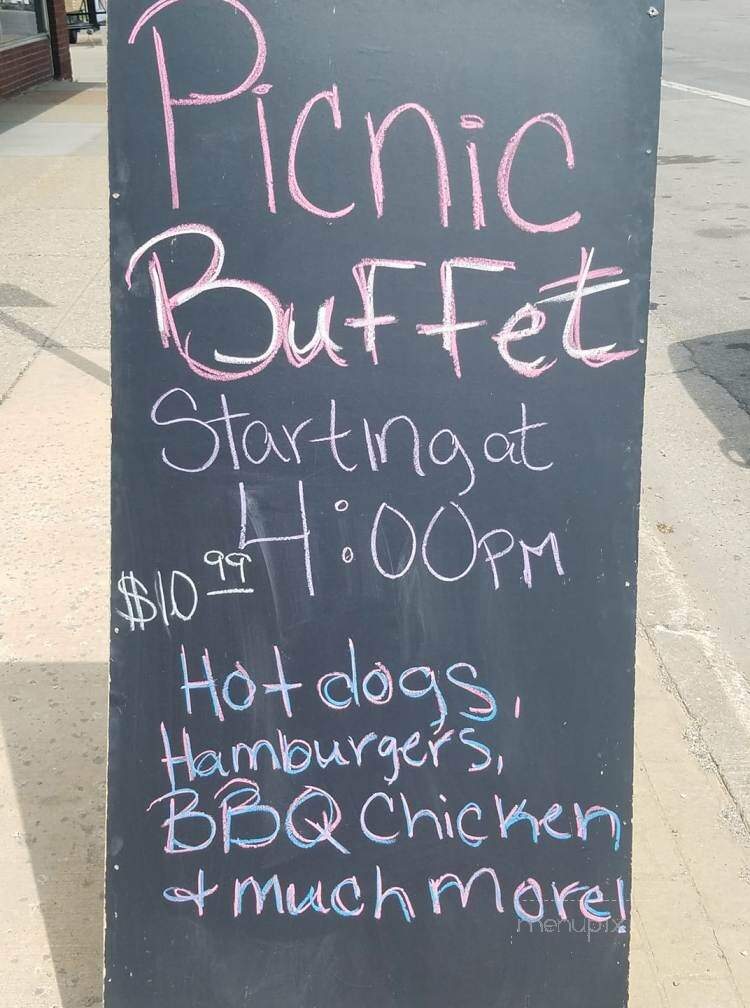 Picnic
Buffet
Starting at
4:00PM
$10 99
Hot dogs,
Hamburgers,
BBQ Chicken
& much more!
menupix